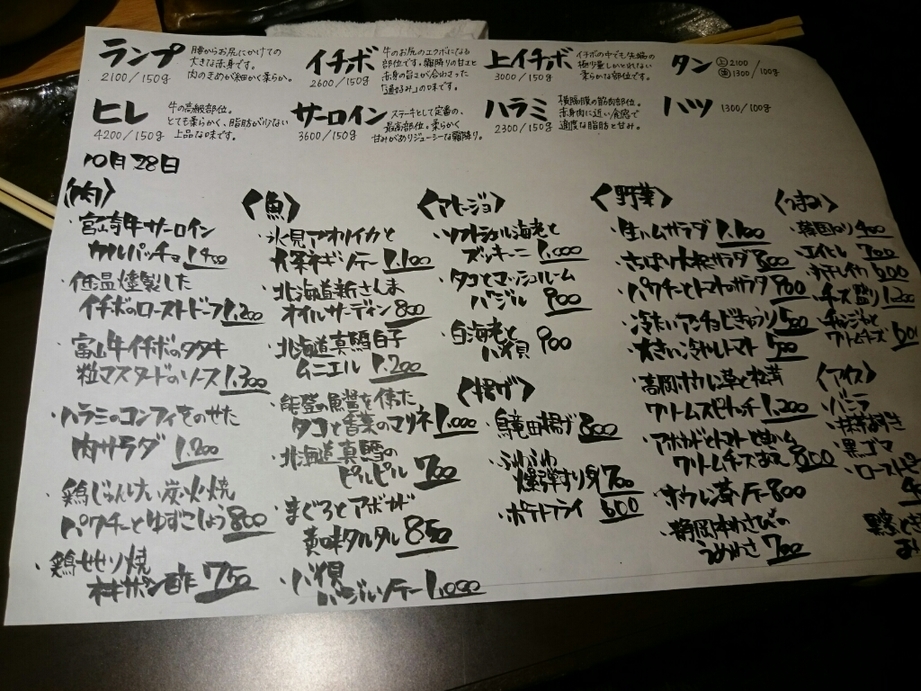 ランプ
2100/150g
腰からお尻にかけての
大きな赤身です。
肉のきめが細かく柔らか。
イチボ
2600/150g
牛のお尻のエクボになる
部位です。霜降りの甘さと
赤身の旨さが合わさった
「通好み」の味です。
上イチボ
3000/150g
イチボの中でも先端の
極少量しかとれない
柔らかな部位です。
タン
上 2100
1300/100g
ヒレ
4200/150g
牛の高級部位。
とても柔らかく、脂肪が少ない
上品な味です。
サーロイン
3600/150g
ステーキとして定番の、
最高部位。柔らかく
甘みがありジューシーな霜降り。
ハラミ
2300/150g
横隔膜の筋肉部位。
赤身肉に近い食感で
適度な脂肪と甘み。
ハツ
1300/100g
10月28日
〈肉〉
・宮崎牛サーロイン
カルパッチョ
・低温燻製した
イチボのローストビーフ 1,200
・富山牛イチボのタタキ
粒マスタードのソース 1,300
・ハラミのコンフィをのせた
肉サラダ 1,200
・鶏じゅんけい炭火焼
パクチーとゆずこしょう 800
・鶏せせり焼
ポン酢 750
〈魚〉
・氷見アオリイカと
九条ネギソテー 1,100
・北海道新さんま
オイルサーディン 800
・北海道真鱈白子
ムニエル 1,200
・能登の魚醤を使った
タコと香菜のマリネ 1,000
・北海道真鱈の
ピルピル 700
・まぐろとアボカド
黄味タルタル 850
・バイ貝
バジルソテー 1,000
〈アヒージョ〉
・ソフトシェル海老と
ズッキーニ 1,000
・タコとマッシュルーム
バジル 900
・白海老と
バイ貝 900
〈揚げ〉
・竜田揚げ 800
・ふわふわ
爆弾すり身 700
・ポテトフライ 600
〈野菜〉
・生ハムサラダ 1,100
・さっぱり大根サラダ 800
・パクチーとトマトサラダ 900
・冷たいアンチョビきゅうり 500
・大きい冷やしトマト 500
・高岡
クリームスピナッチ 1,200
・アボカドとトマトと生ハム
クリームチーズあえ 800
・ホウレン草ソテー 800
・静岡本わさびの
うめわさ 700
〈つまみ〉
・韓国のり 400
・エイヒレ 700
600
・チーズ盛り 1,200
・チャンジャと
クリームチーズ
〈アイス〉
・バニラ
・抹茶あずき
・黒ゴマ